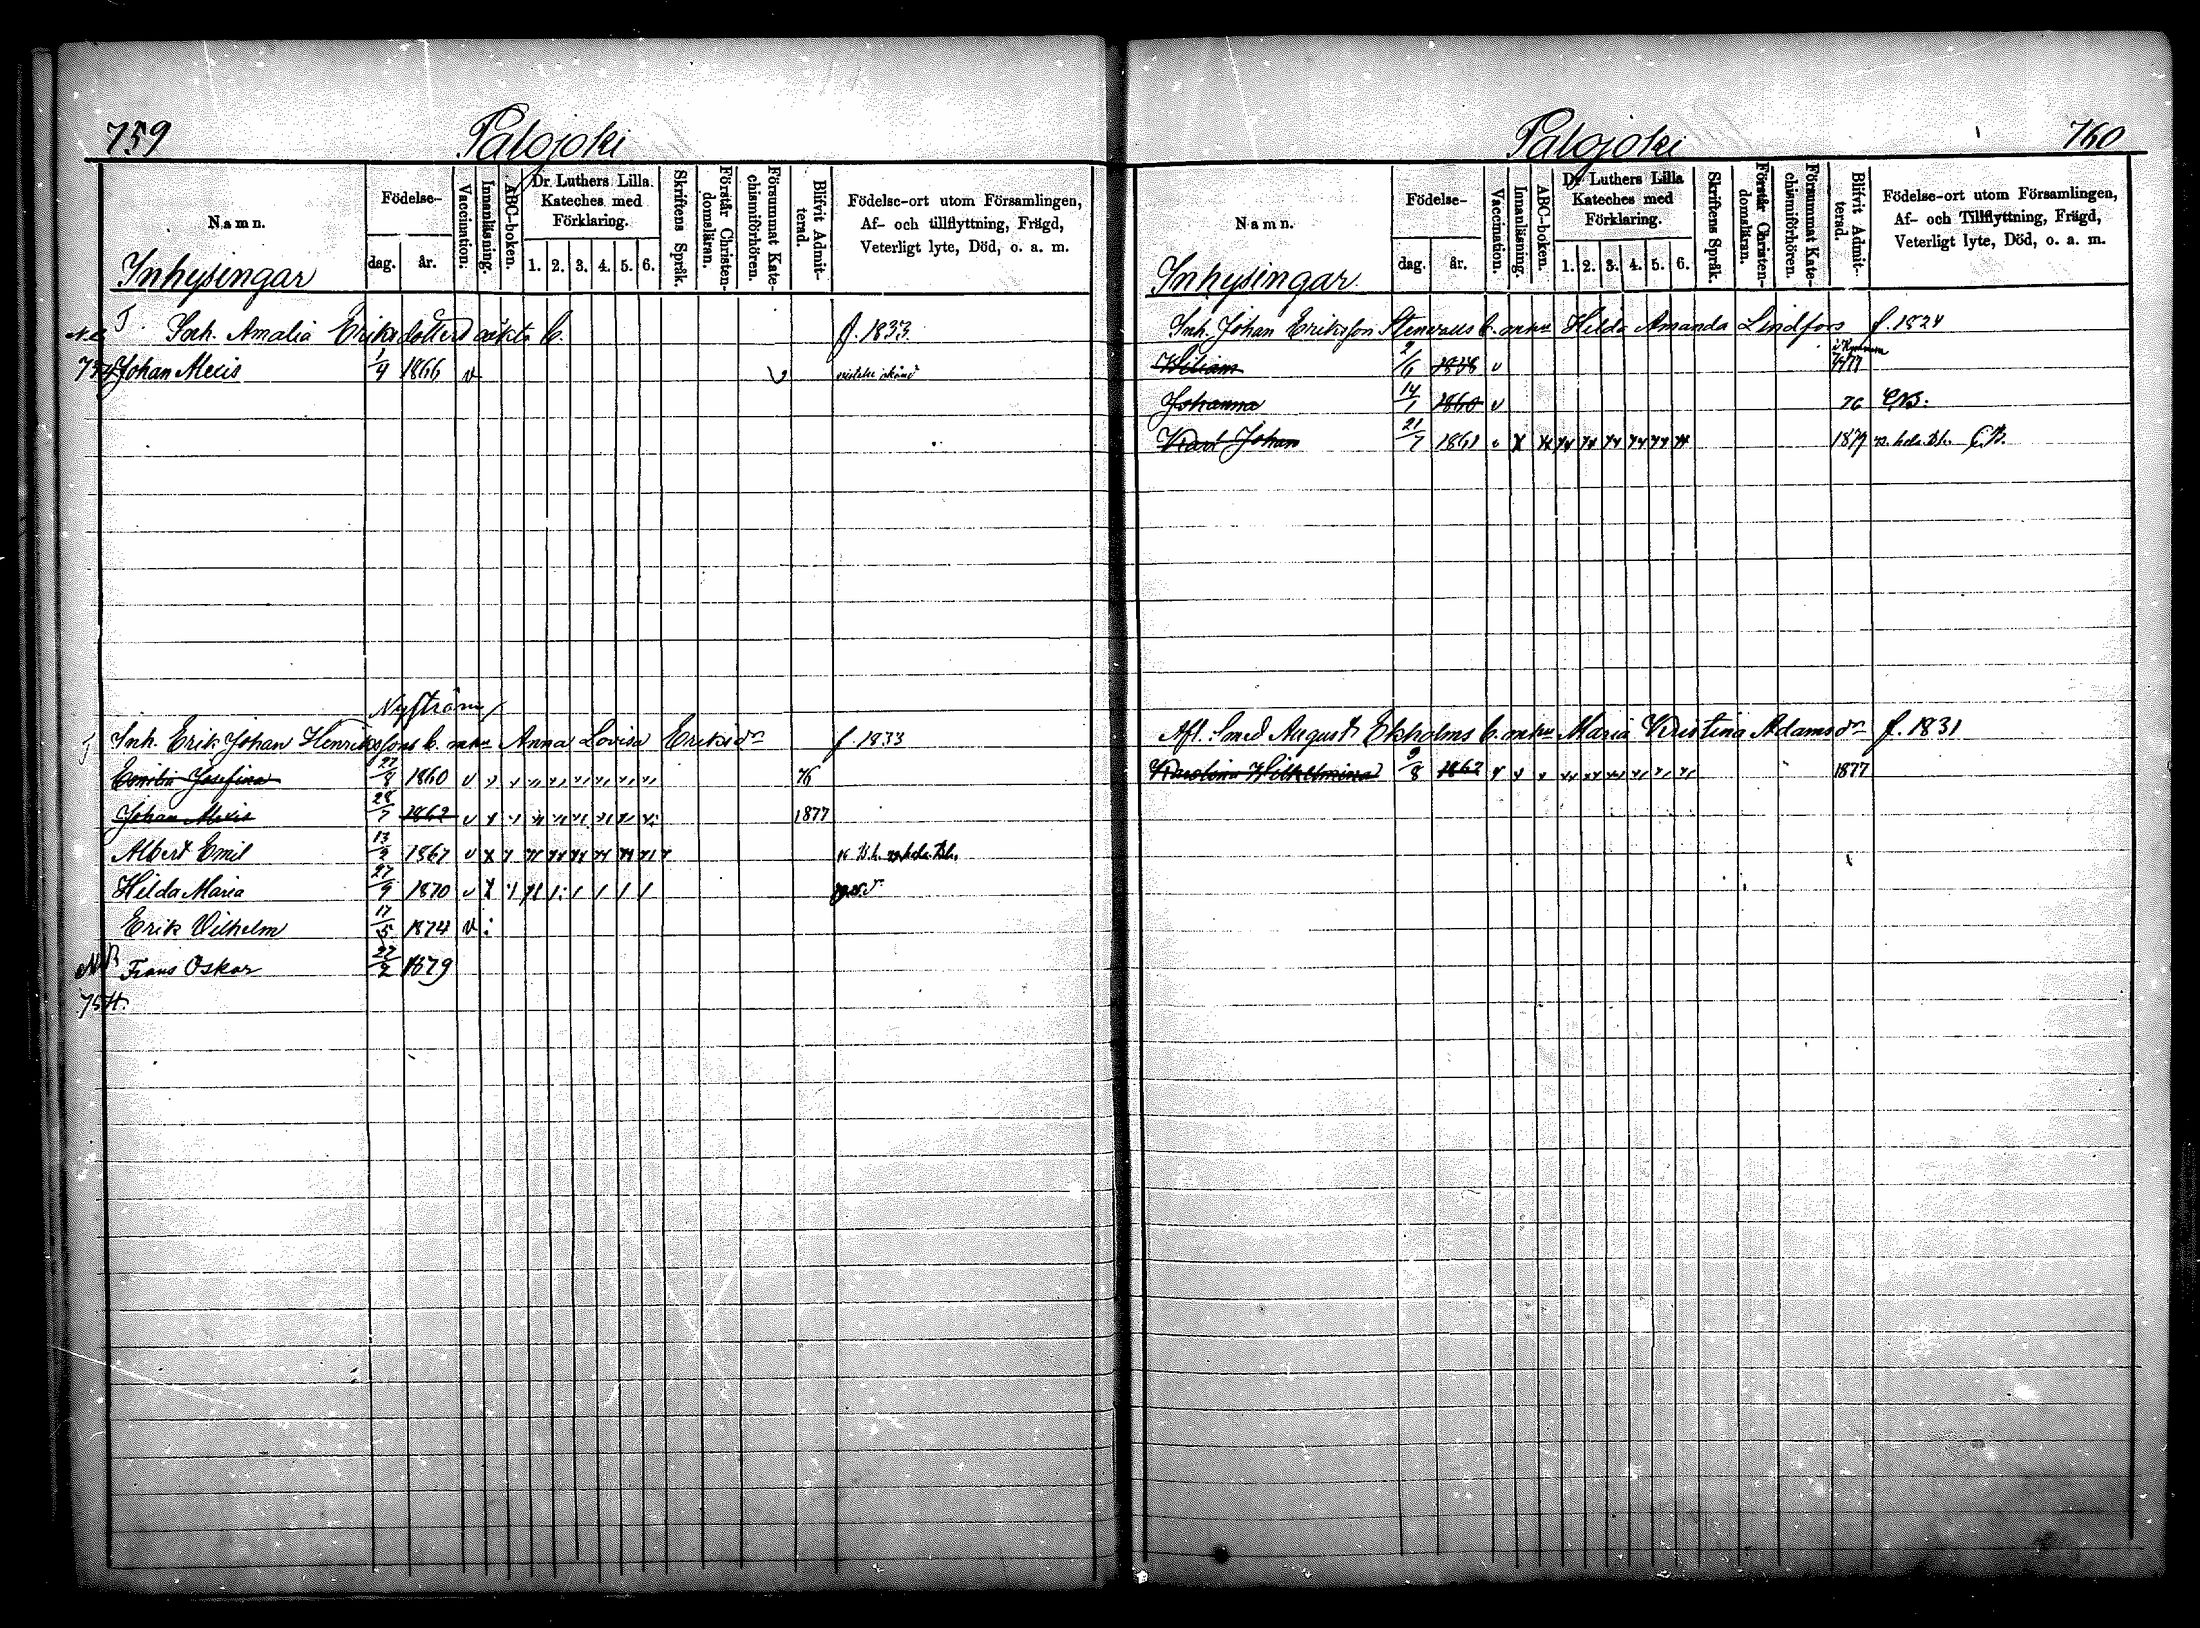 759 Palojoki
Namn. Födelse- dag. år. Vaccination. Innanläsning. ABC-boken. Dr. Luthers Lilla Kateches med Förklaring. 1. 2. 3. 4. 5. 6. Skriftens Språk. Förstår Christendomsläran. Försummat Katechismiförhören. Blifvit Admitterad. Födelse-ort utom Församlingen, Af- och tillflyttning, Frägd, Veterligt lyte, Död, o. a. m.
Inhysingar
Inh. Amalia Eriksdotters oäkta b. f. 1833
754 Johan 1/4 1866 v
Nyström
Inh. Erik Johan Henrikssons b. Anna Lovisa Eriksdr f. 1833
Emilia Josefina 27/8 1860 v 76
Johan 28/7 1862 v 1877
Albert Emil 13/2 1867 v
Hilda Maria 27/9 1870 v
Erik Vilhelm 17/5 1874 v
Frans Oskar 22/2 1879
754.
Palojoki 760
Namn. Födelse- dag. år. Vaccination. Innanläsning. ABC-boken. Dr. Luthers Lilla Kateches med Förklaring. 1. 2. 3. 4. 5. 6. Skriftens Språk. Förstår Christendomsläran. Försummat Katechismiförhören. Blifvit Admitterad. Födelse-ort utom Församlingen, Af- och Tillflyttning, Frägd, Veterligt lyte, Död, o. a. m.
Inhysingar
Inh. Johan Eriksson b. Hilda Amanda Lindfors f. 1824
2/6 1858 v
Johanna 14/1 1860 v 76
Karl Johan 21/7 1861 1879
Afl. Smed August Ekholms b. Maria Kristina Adamsdr f. 1831
Karolina Wilhelmina 9/8 1862 1877